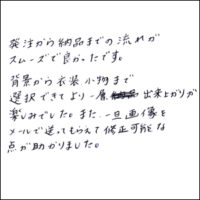 発注から納品までの流れが
スムーズで良かったです。
背景から衣装、小物まで
選択できてより一層出来上がりが
楽しみでした。また、一旦画像を
メールで送ってもらえて修正可能な
点が助かりました。